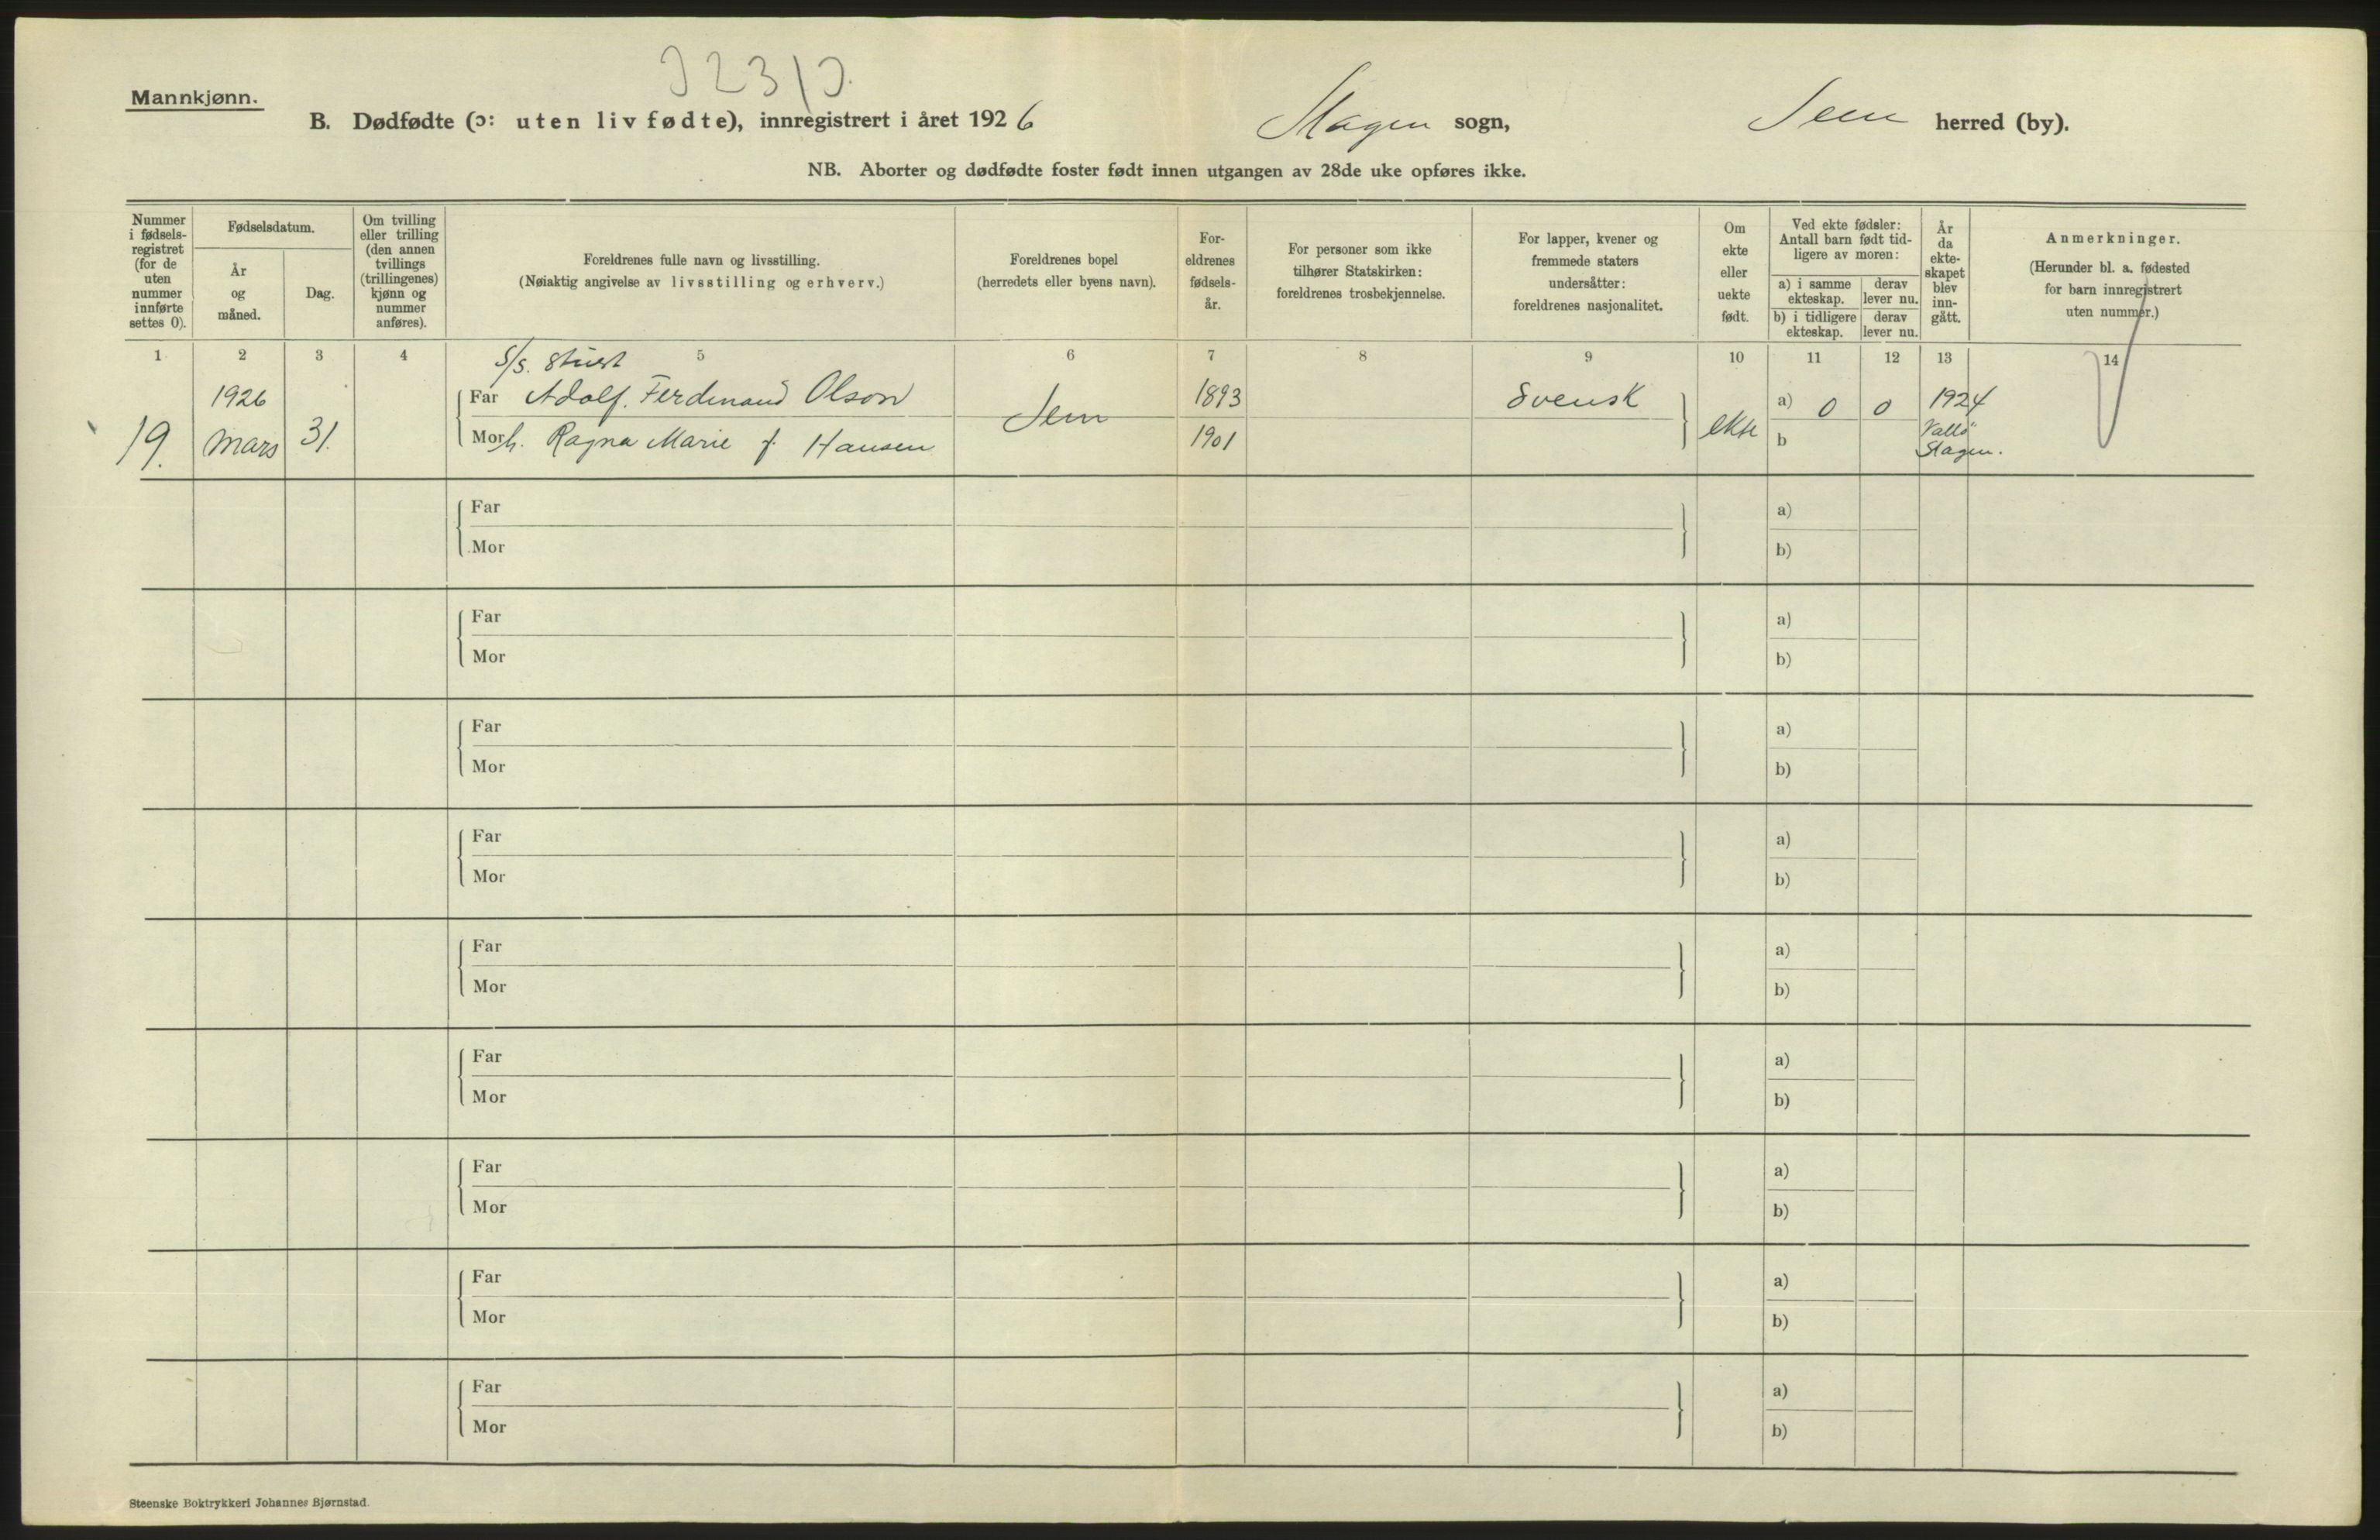 Mannkjønn.
B. Dødfødte (ɔ: uten liv fødte), innregistrert i året 1926 Slagen sogn, Sem herred (by).
NB. Aborter og dødfødte foster født innen utgangen av 28de uke opføres ikke.
Nummer i fødsels-registret (for de uten nummer innførte settes 0).
Fødselsdatum.
År og måned.
Dag.
Om tvilling eller trilling (den annen tvillings (trillingenes) kjønn og nummer anføres).
Foreldrenes fulle navn og livsstilling.
(Nøiaktig angivelse av livsstilling og erhverv.)
Foreldrenes bopel
(herredets eller byens navn).
For-eldrenes fødsels-år.
For personer som ikke tilhører Statskirken: foreldrenes trosbekjennelse.
For lapper, kvener og fremmede staters undersåtter: foreldrenes nasjonalitet.
Om ekte eller uekte født.
Ved ekte fødsler: Antall barn født tid-ligere av moren:
a) i samme ekteskap.
derav lever nu.
b) i tidligere ekteskap.
derav lever nu.
År da ekte-skapet blev inn-gått.
Anmerkninger.
(Herunder bl. a. fødested for barn innregistrert uten nummer.)
1 2 3 4 5 6 7 8 9 10 11 12 13 14
S/s. stuert
1926 Far Adolf. Ferdinand Olson Sem 1893 Svensk a) 0 0 1924
19. Mars 31. Mor h. Ragna Marie f. Hansen 1901 ekte b Vallö
Slagen.
Far a)
Mor b)
Far a)
Mor b)
Far a)
Mor b)
Far a)
Mor b)
Far a)
Mor b)
Far a)
Mor b)
Far a)
Mor b)
Far a)
Mor b)
Far a)
Mor b)
Steenske Boktrykkeri Johannes Bjørnstad.